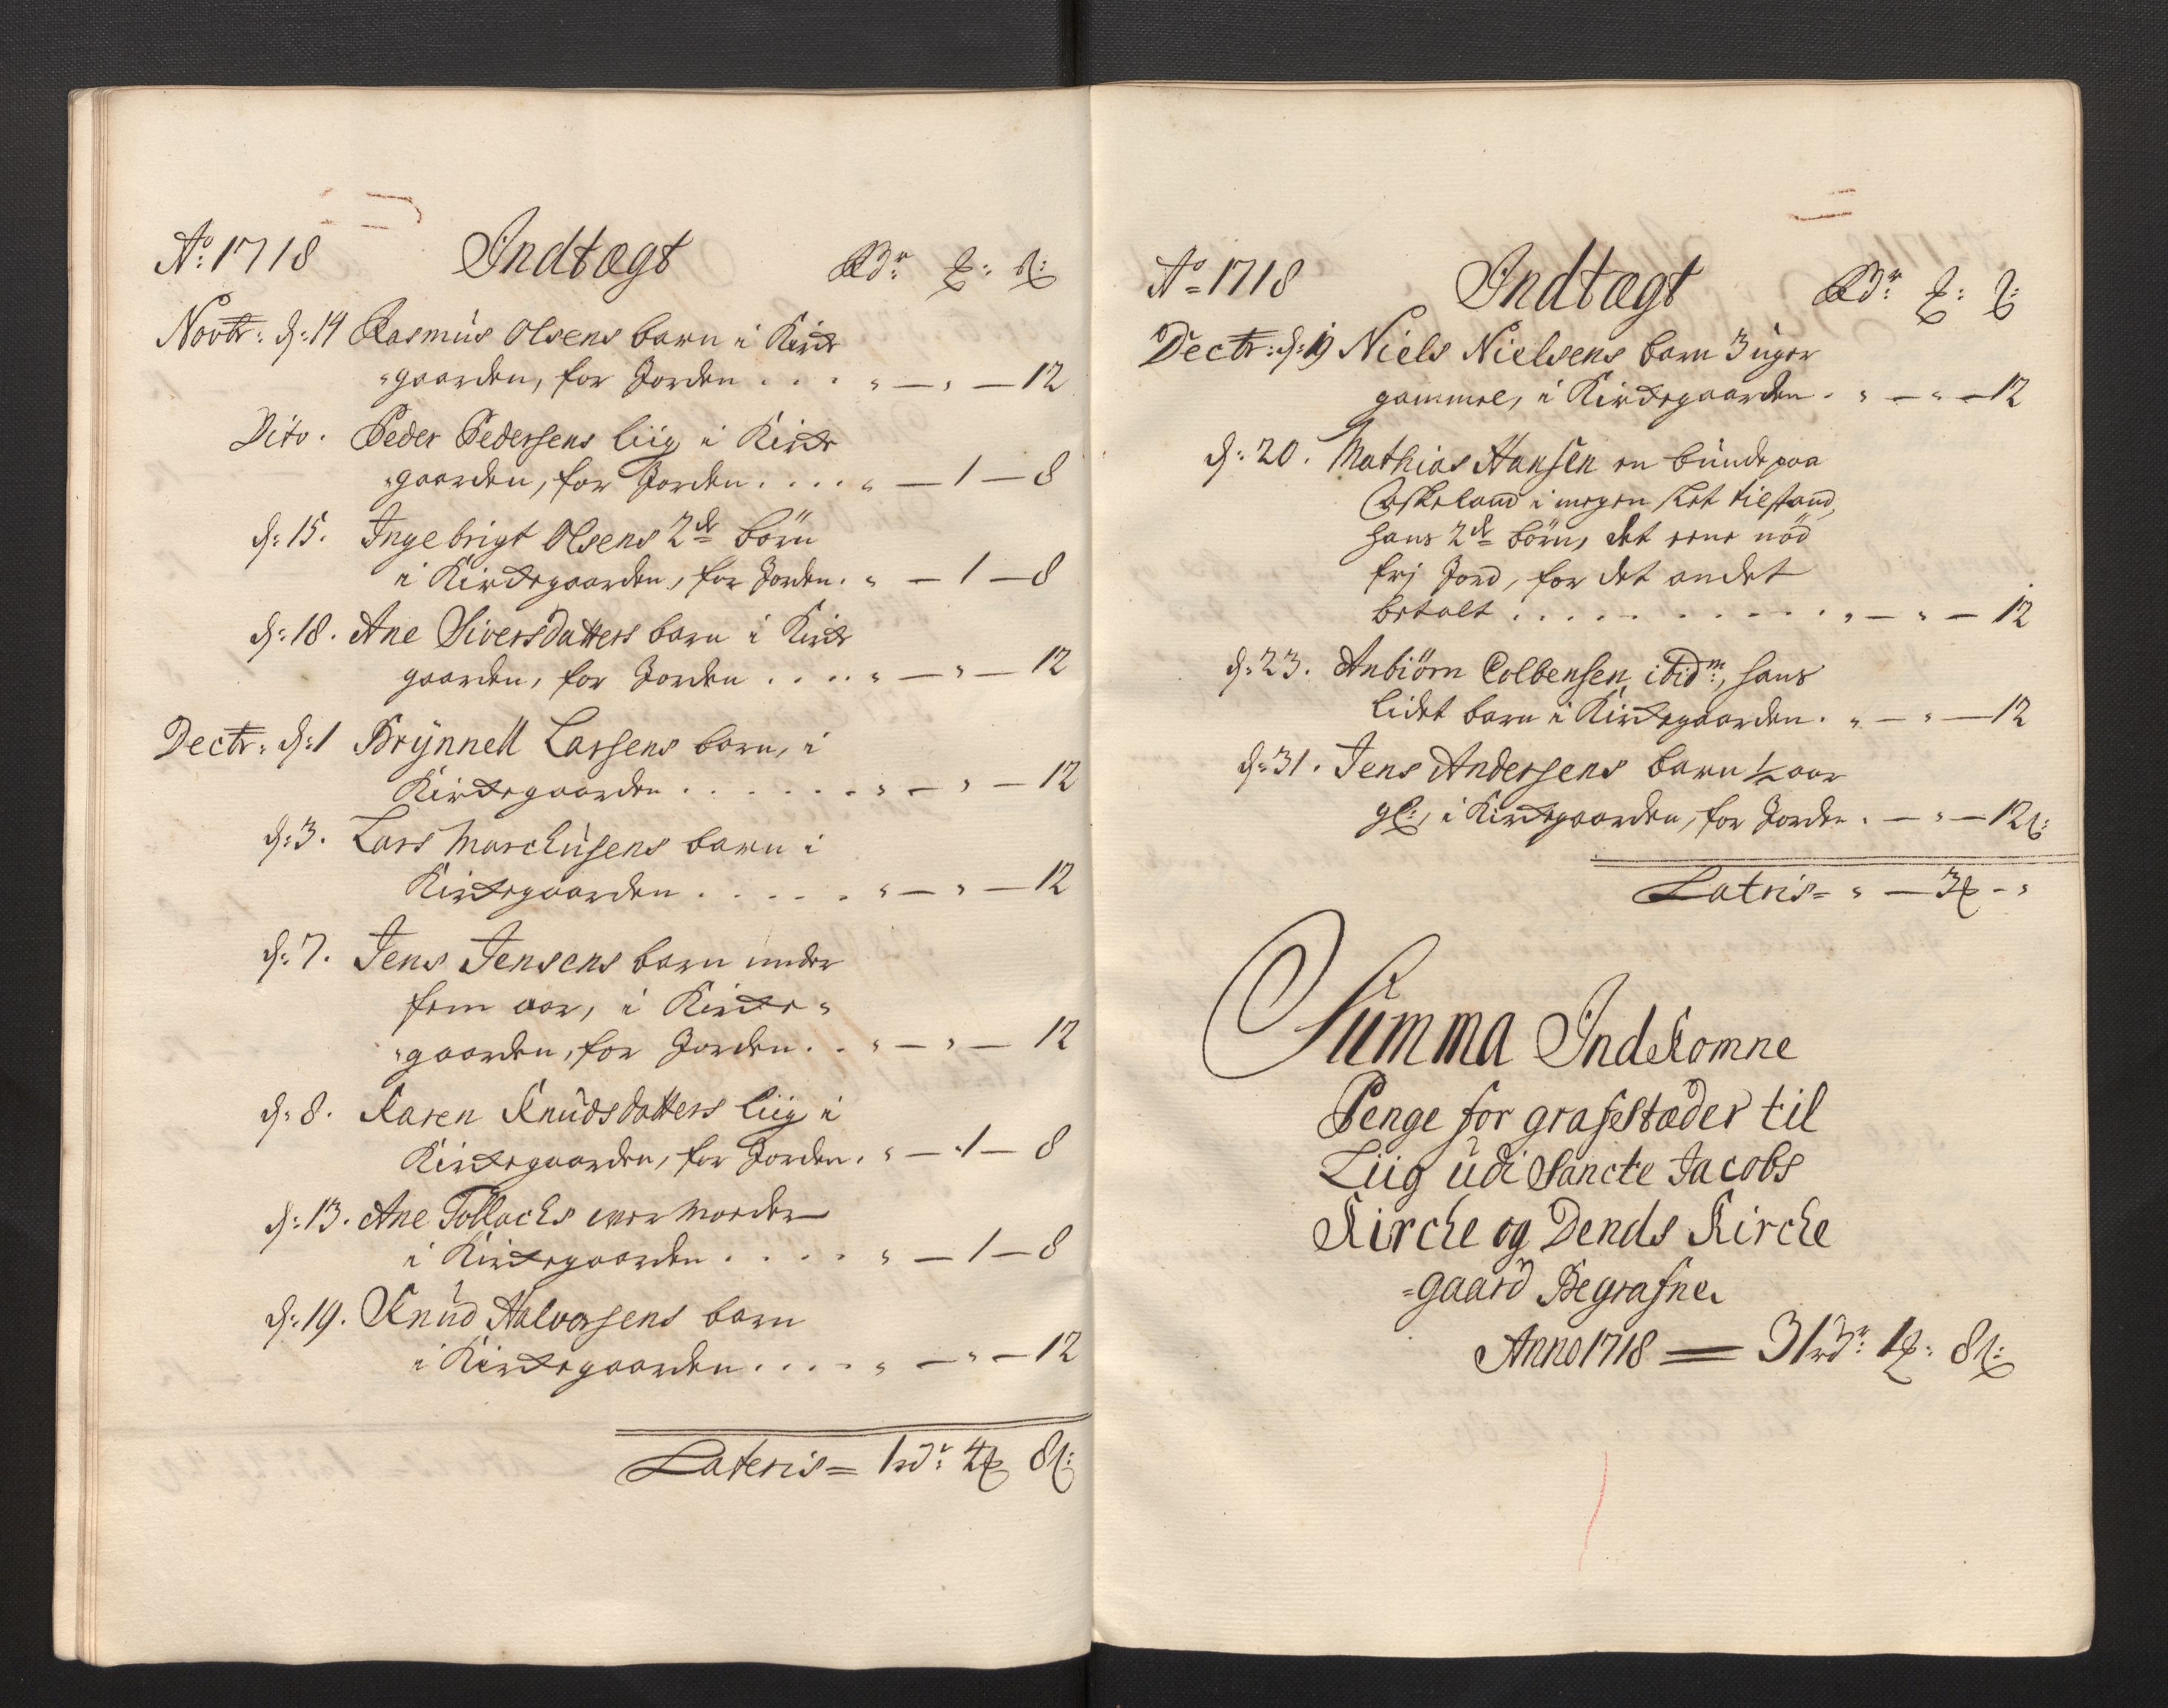 Ao: 1718 Indtægt Rdr: ℳ: ß:
Novbr: d: 14 Rasmus Olsens barn i Kircke
gaarden, for Jorden . . . . " — " — 12
Dito. Peder Pedersens liig i Kircke
gaarden, for Jorden . . . . " — 1 — 8
d: 15. Ingebrigt Olsens 2de börn
i Kirckegaarden, for Jorden. " — 1 — 8
d: 18. Ane Siversdatters barn i Kircke
gaarden, for Jorden . . . . " — " — 12
Decbr: d: 1 Brÿnnell Larsens barn, i
Kirckegaarden . . . . . . . " — " — 12
d: 3. Lars Marchusens barn i
Kirckegaarden . . . . . " — " — 12
d: 7. Jens Jensens barn under
fem aar, i Kircke=
gaarden, for Jorden . . " — " — 12
d: 8. Karen Knudsdatters liig i
Kirckegaarden, for Jorden. " — 1 — 8
d: 13. Ane Tollachs
i Kirckegaarden . . . . " — 1 — 8
d: 19. Knud Halvorsens barn
i Kirckegaarden . . . . " — " — 12
Lateris = 1 rdr: 4 ℳ 8 ß:
Ao = 1718 Indtægt Rdr: ℳ: ß:
Decbr: d: 19 Niels Nielsens barn 3 uger
gammel, i Kirckegaarden . " — " — 12
d: 20. Mathias Hansen en bunde paa
Askeland i megen slet tilstand,
hans 2de börn, det eene nöd
frj Jord, for det andet
betalt . . . . . . . . . . " — " — 12
d: 23. Anbiörn Colbensen ibidm:, hans
lidet barn i Kirckegaarden. " — " — 12
d: 31. Jens Andersens barn 1/2 aar
gl:, i Kirckegaarden, for Jorden . — " — 12 ß:
Latris = " — 3 ℳ - "
Summa Indkomne
Penge for grafestæder til
Liig udi Sancte Jacobs
Kirche og Dends Kirche
=gaard Begrafne.
Anno 1718 = 31 rdr: 1 ℳ: 8 ß: